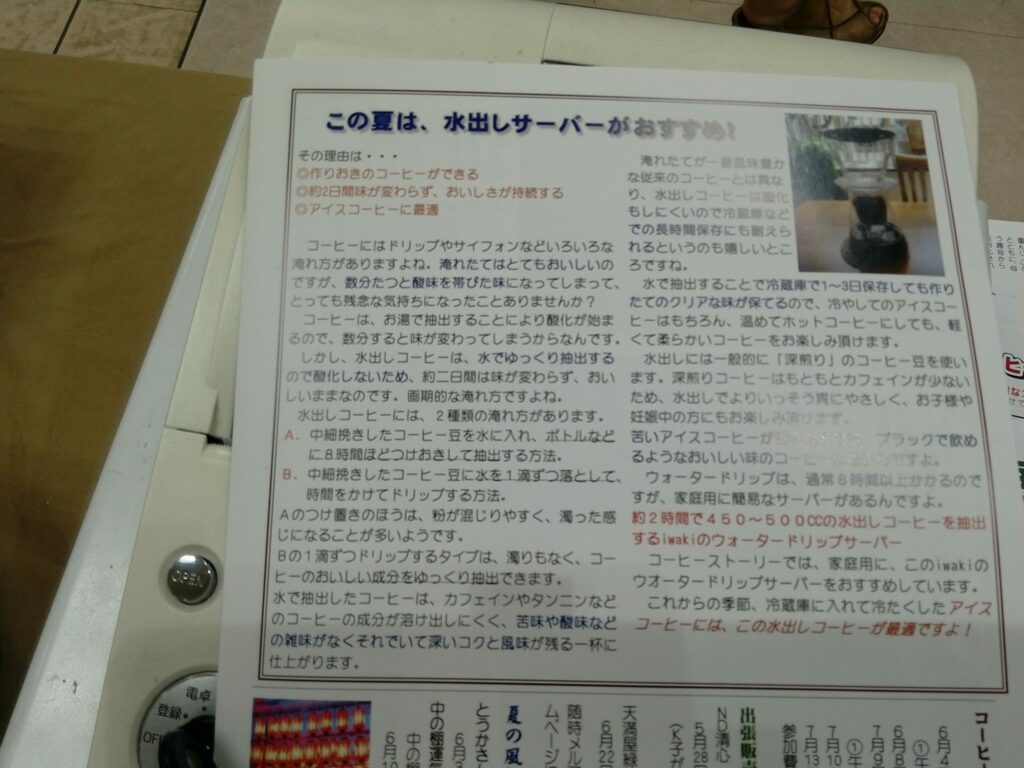 この夏は、水出しサーバーがおすすめ!
その理由は・・・
◎作りおきのコーヒーができる
◎約2日間味が変わらず、おいしさが持続する
◎アイスコーヒーに最適
コーヒーにはドリップやサイフォンなどいろいろな
淹れ方がありますよね。淹れたてはとてもおいしいの
ですが、数分たつと酸味を帯びた味になってしまって、
とっても残念な気持ちになったことありませんか？
コーヒーは、お湯で抽出することにより酸化が始ま
るので、数分すると味が変わってしまうからなんです。
しかし、水出しコーヒーは、水でゆっくり抽出する
ので酸化しないため、約二日間は味が変わらず、おい
しいままなのです。画期的な淹れ方ですよね。
水出しコーヒーには、２種類の淹れ方があります。
A．中細挽きしたコーヒー豆を水に入れ、ボトルなど
に８時間ほどつけおきして抽出する方法。
B．中細挽きしたコーヒー豆に水を１滴ずつ落として、
時間をかけてドリップする方法。
Aのつけ置きのほうは、粉が混じりやすく、濁った感
じになることが多いようです。
Bの１滴ずつドリップするタイプは、濁りもなく、コー
ヒーのおいしい成分をゆっくり抽出できます。
水で抽出したコーヒーは、カフェインやタンニンなど
のコーヒーの成分が溶け出しにくく、苦味や酸味など
の雑味がなくそれでいて深いコクと風味が残る一杯に
仕上がります。
淹れたてが一番風味豊か
な従来のコーヒーとは異な
り、水出しコーヒーは酸化
もしにくいので冷蔵庫など
での長時間保存にも耐えら
れるというのも嬉しいとこ
ろですね。
水で抽出することで冷蔵庫で1〜3日保存しても作り
たてのクリアな味が保てるので、冷やしてのアイスコー
ヒーはもちろん、温めてホットコーヒーにしても、軽
くて柔らかいコーヒーをお楽しみ頂けます。
水出しには一般的に「深煎り」のコーヒー豆を使い
ます。深煎りコーヒーはもともとカフェインが少ない
ため、水出しでよりいっそう胃にやさしく、お子様や
妊娠中の方にもお楽しみ頂けます。
苦いアイスコーヒーが ブラックで飲め
るようなおいしい味のコーヒー すよ。
ウォータードリップは、通常８時間以上かかるので
すが、家庭用に簡易なサーバーがあるんですよ。
約２時間で４５０〜５００CCの水出しコーヒーを抽出
するiwakiのウォータードリップサーバー
コーヒーストーリーでは、家庭用に、このiwakiの
ウオータードリップサーバーをおすすめしています。
これからの季節、冷蔵庫に入れて冷たくしたアイス
コーヒーには、この水出しコーヒーが最適ですよ！
OPEN
電卓
登録
OFF
コーヒ
6月4
6月8
①午
7月9
①午
7月10
7月13
参加費
出張販売
ND清心
5月28日
(K子が
天満屋緑
6月22
随時メル
ムページ
夏の風
とうかさん
6月3
中の棚運気
中の
6月10